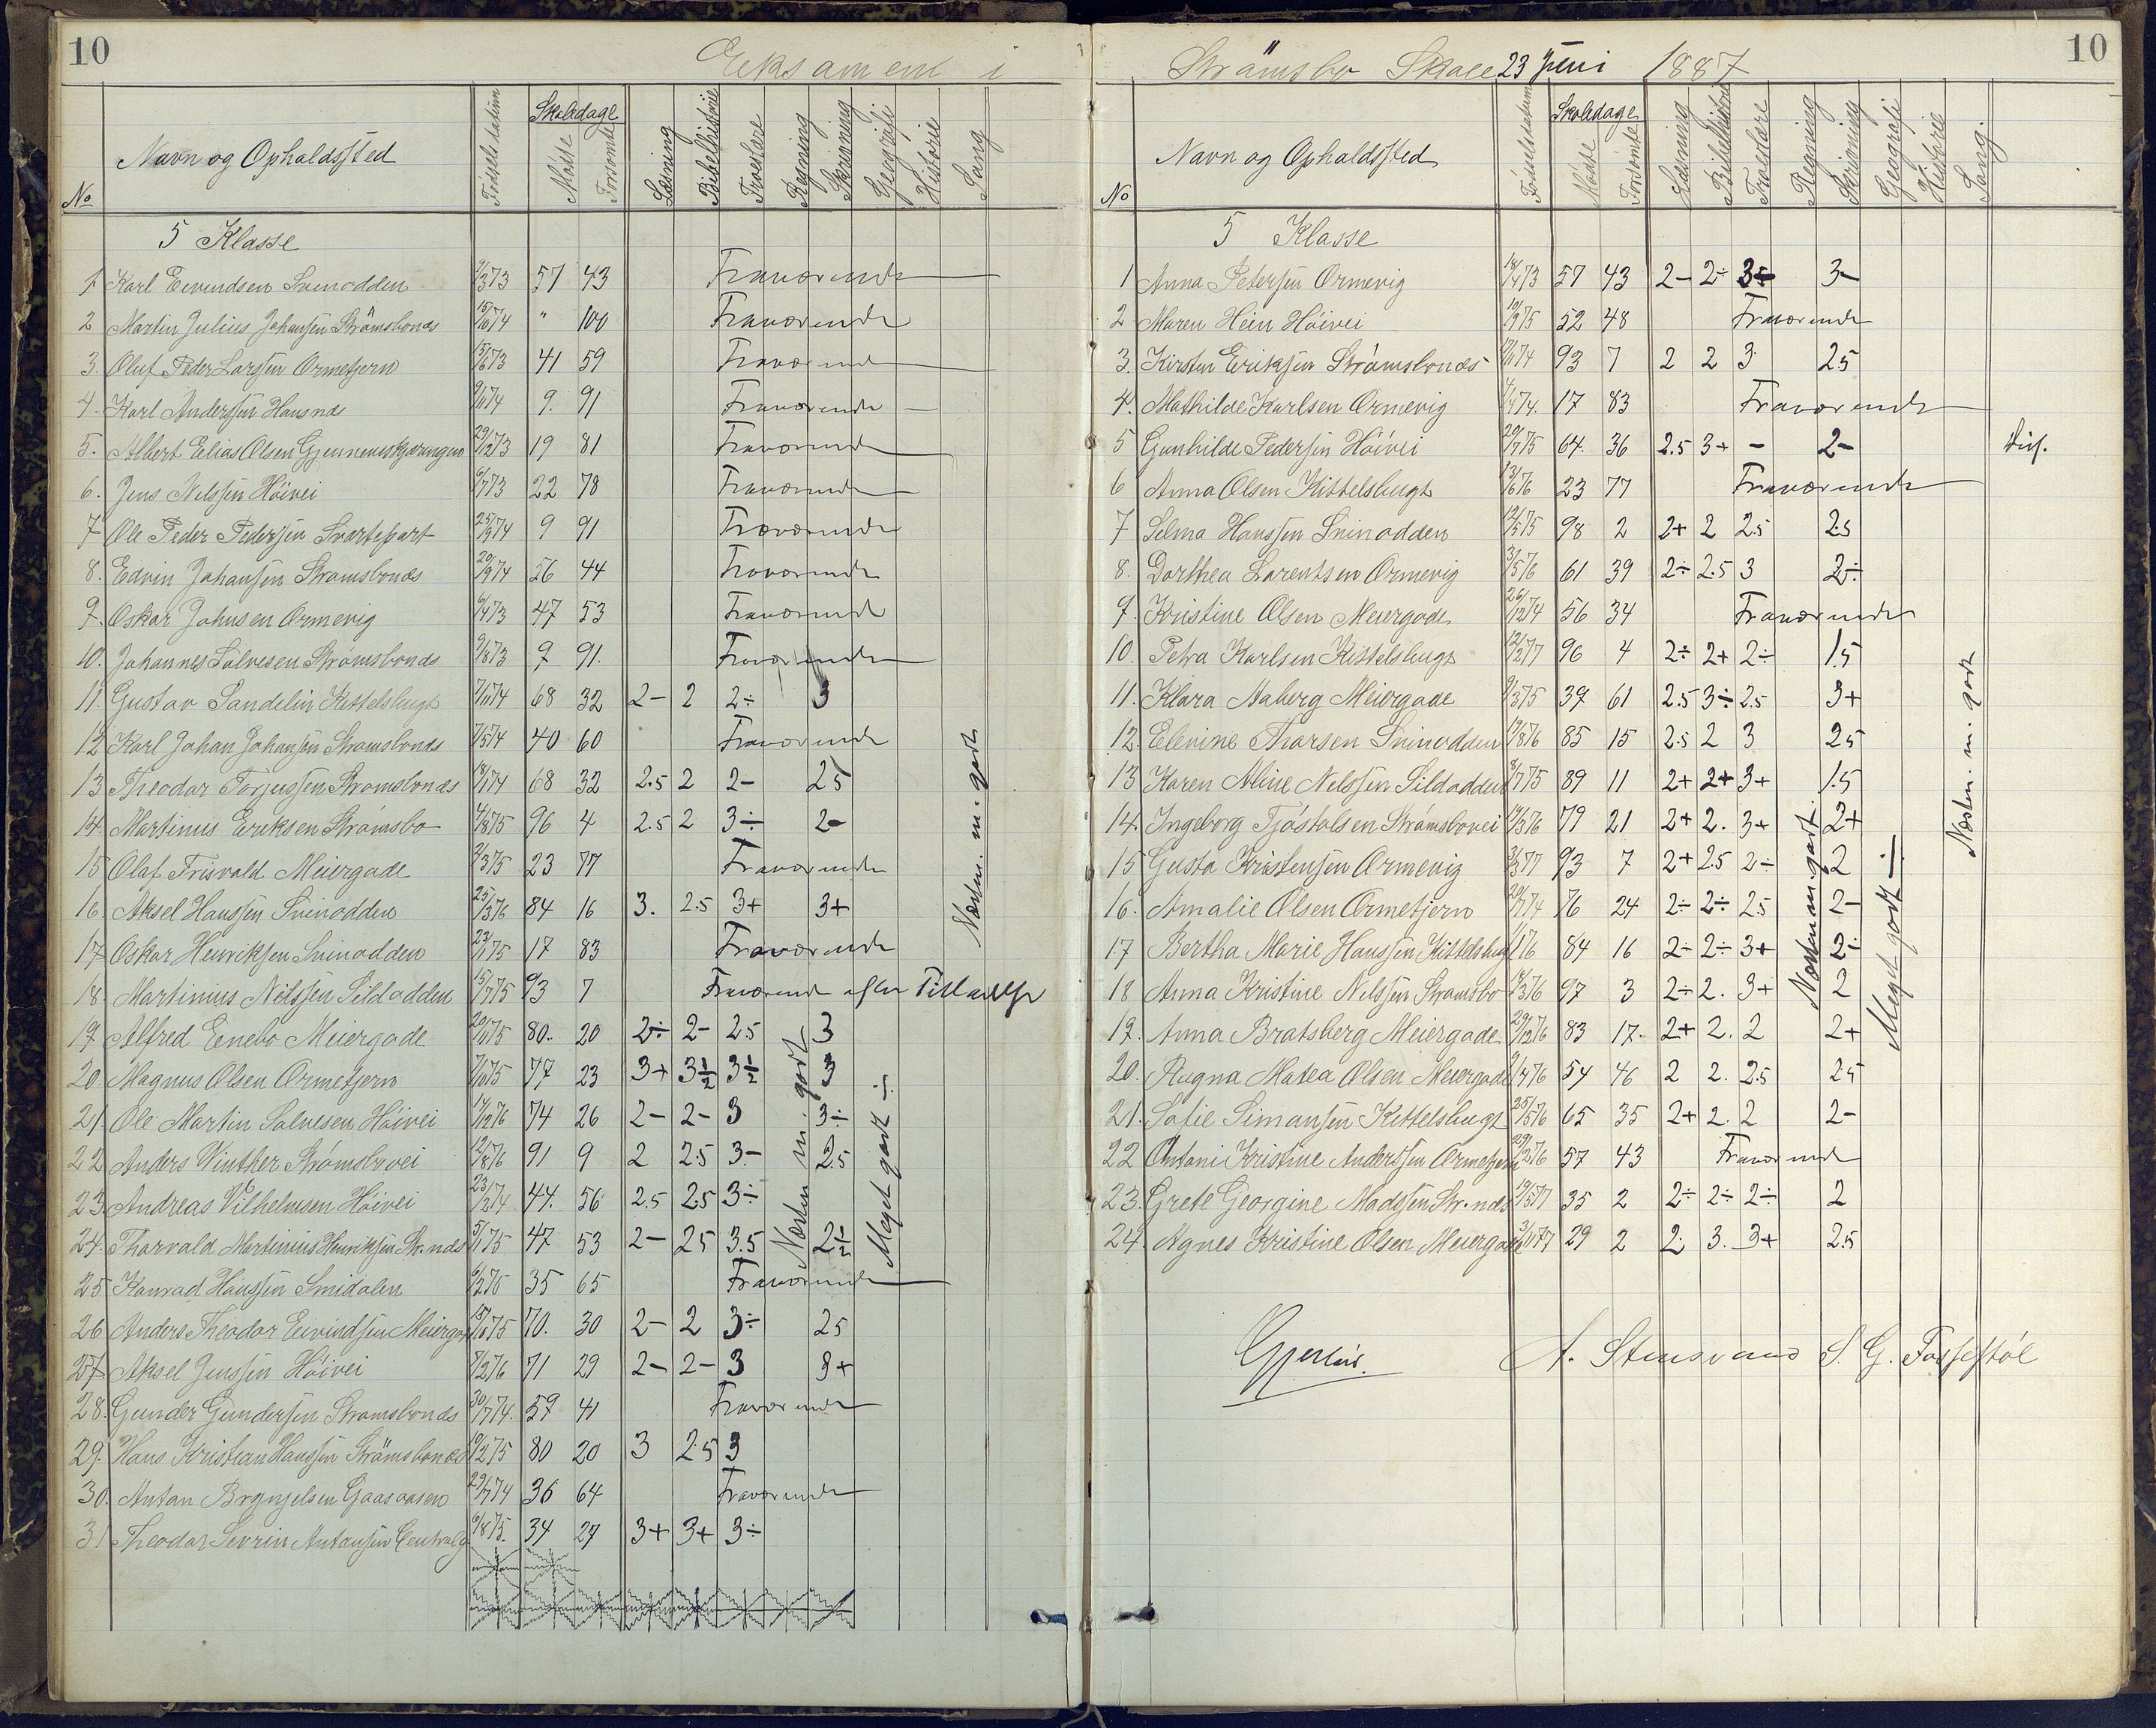 10
Eksamen i
No Navn og Opholdssted Fødselsdatum Skoledage Mødte Forsømte Læsning Bibelhistorie Troeslære Regning Skrivning Geografi Historie Sang
5 Klasse
1 Karl Eevindsen Svinodden 57 43 Fraværende
2 Martin Julius Johansen Strømsbonds " 100 Fraværende
3. Oluf Peder Larssen Ormetjern 41 59 Fraværende
4. Karl Anderssen Hausnds 9. 91 Fraværende
5. Albert Elias Olsen 29/12 73 19 81 Fraværende
6. Jens Nilssen Høivei 22 78 Fraværende
7 Ole Peder Pedersen Svartepart 9 91 Fraværende
8. Edvin Johansen Strømsbonds 20/9 74 56 44 Fraværende
9. Oskar Johnsen Ormevig 47 53 Fraværende
10. Johannes Salvesen Strømsbonds 9 91. Fraværende
11. Gustav Sandelin Kittelsbugt 68 32 2- 2 2÷ 3
12 Karl Johan Johansen Strømsbonds 40 60 Fraværende
13 Theodor Torjussen Strømsbonds 68 32 2.5 2 2- 25
14. Martinus Eriksen Strømsbo 96 4 2.5 2 3÷ 2-
15 Olaf Frisvold Meiergade 23 77 Fraværende
16. Aksel Hanssen Svinodden 25/3 76 84 16 3. 2.5 3+ 3+
17 Oskar Henriksen Svinodden 17 83 Fraværende
18. Martinius Nilssen Sildodden 15/7 75 93 7 Fraværende efter Tilladelse
19. Alfred Enebo Meiergade 80. 20 2÷ 2- 25 3
20. Magnus Olsen Ormetjern 77 23 3+ 3½ 3½ 3
21. Ole Martin Salvesen Høivei 74 26 2- 2- 3 3÷
22 Anders Winther Strømsbovei 12/8 76 91 9 2 25 3- 2.5
23. Andreas Vilhelmsen Høivei 44. 56 2.5 25 3÷
24. Thorvald Martinius Henriksen Str.nds 47 53 2- 25 3.5 2½
25 Konrad Hanssen Smidalen 35 65 Fraværende
26 Anders Theodor Eevindsen Meiergade 70. 30 2- 2 3÷ 25
27. Aksel Jenssen Høivei 71 29 2- 2- 3 3+
28. Gunder Gundersen Strømsbonds 59 41 Fraværende
29. Hans Kristian Hanssen Strømsbonds 80 20 3 2.5 3
30. Antan Brynjelsen Gaasaasen 36 64 Fraværende
31 Theodor Sevrin Antonsen 34 27 3+ 3+ 3÷
Næsten m. godt
Meget godt ÷
Næsten m. godt
10
Strømsbo Skole 23 Juni 1887
No Navn og Opholdssted Fødselsdatum Skoledage Mødte Forsømte Læsning Bibelhistorie Troeslære Regning Skrivning Geografi Historie Sang.
5 Klasse
1 Anna Petersen Ormevig 57 43 2- 2÷ 3÷ 3-
2 Maren Hein Høivei 52 48 Fraværende
3. Kirsten Eriksen Strømsbonds 93 7 2 2 3 25
4. Mathilde Karlsen Ormevig 17 83 Fraværende
5 Gunhilde Pedersen Høivei 64. 36 2.5 3+ - 2-
6 Anna Olsen Kittelsbugt 23 77 Fraværende
7 Selma Hanssen Svinodden 98 2 2+ 2 2.5 2.5
8. Dorthea Larentsen Ormevig 61 39 2÷ 2.5 3 2÷
9. Kristine Olsen Meiergade 26/12 74 56 34 Fraværende
10. Petra Karlsen Kittelsbugt 96 4 2÷ 2+ 2÷ 1.5
11. Klara Aaberg Meiergade 39 61 2.5 3÷ 2.5 3+
12. Elevine Thorsen Svinodden 85 15 2.5 2 3 25
13 Karen Aline Nilssen Sildodden 89 11 2+ 2+ 3+ 1.5
14. Ingeborg Tjøstolsen Strømsbovei 79 21 2+ 2. 3+ 2+
15 Gusta Kristensen Ormevig 93 7 2+ 2.5 2÷ 2
16. Amalie Olsen Ormetjern 76 24 2÷ 2÷ 25 2-
17 Bertha Marie Hanssen Kittelsbugt 84 16 2÷ 2÷ 3+ 2÷
18 Anna Kristine Nilssen Strømsbo 97 3 2÷ 2. 3+ 2
19. Anna Bratsberg Meiergade 29/12 76 83 17. 2+ 2. 2 2+
20. Ragna Matea Olsen Meiergade 54 46 2 2. 2.5 25
21. Sofie Simonsen Kittelsbugt 25/5 76 65 35 2+ 2. 2 2-
22 Antoni Kristine Anderssen Ormetjern 57 43 Fraværende
23. Grete Georgine Madssen Str.nds 35 2 2÷ 2÷ 2÷ 2
24. Agnes Kristine Olsen Meiergade 29 2 2. 3. 3+ 2.5
Næsten m. godt
Meget godt ÷
Næsten m. godt
A. Stensvand S. G. Fosselstøl